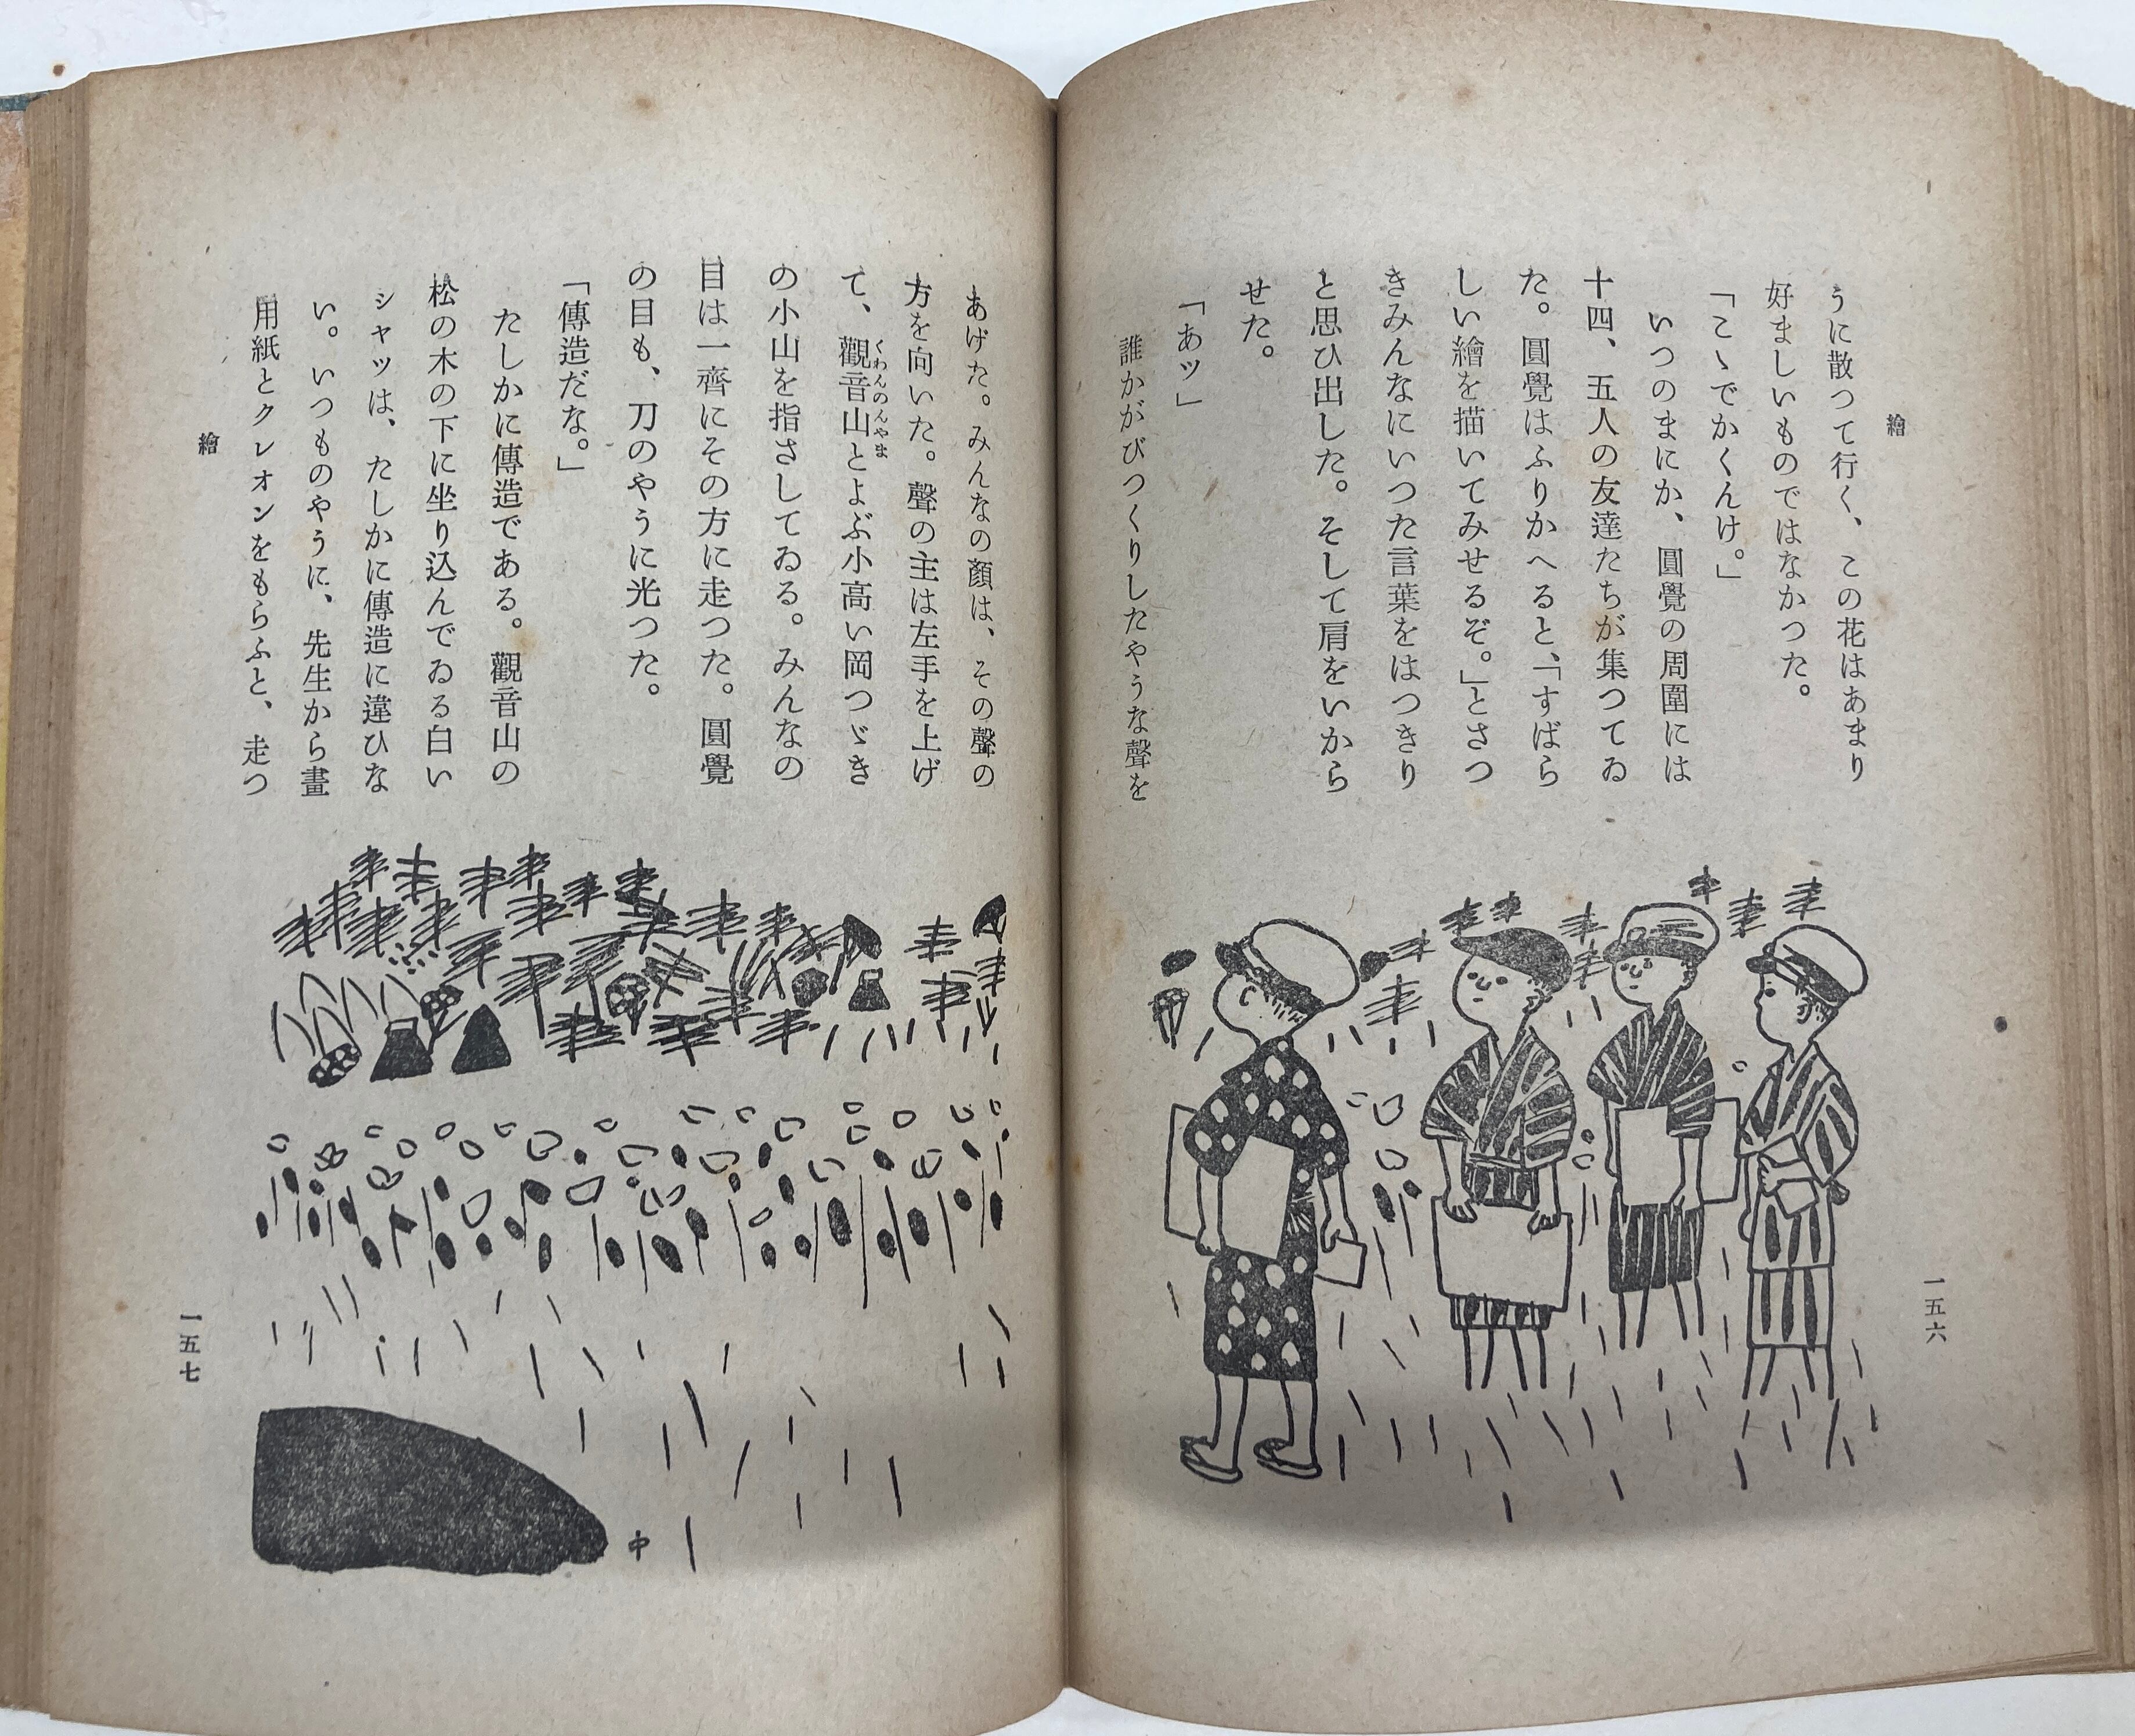 繪
うに散つて行く、この花はあまり
好ましいものではなかつた。
「こゝでかくんけ。」
いつのまにか、圓覺の周圍には
十四、五人の友達たちが集つてゐ
た。圓覺はふりかへると、「すばら
しい繪を描いてみせるぞ。」とさつ
きみんなにいつた言葉をはつきり
と思ひ出した。そして肩をいから
せた。
「あツ」
誰かがびつくりしたやうな聲を
一五六
あげた。みんなの顏は、その聲の
方を向いた。聲の主は左手を上げ
て、觀音山とよぶ小高い岡つゞき
くわんのんやま
の小山を指さしてゐる。みんなの
目は一齊にその方に走つた。圓覺
の目も、刀のやうに光つた。
「傳造だな。」
たしかに傳造である。觀音山の
松の木の下に坐り込んでゐる白い
シャツは、たしかに傳造に違ひな
い。いつものやうに、先生から畫
用紙とクレオンをもらふと、走つ
繪
一五七
中